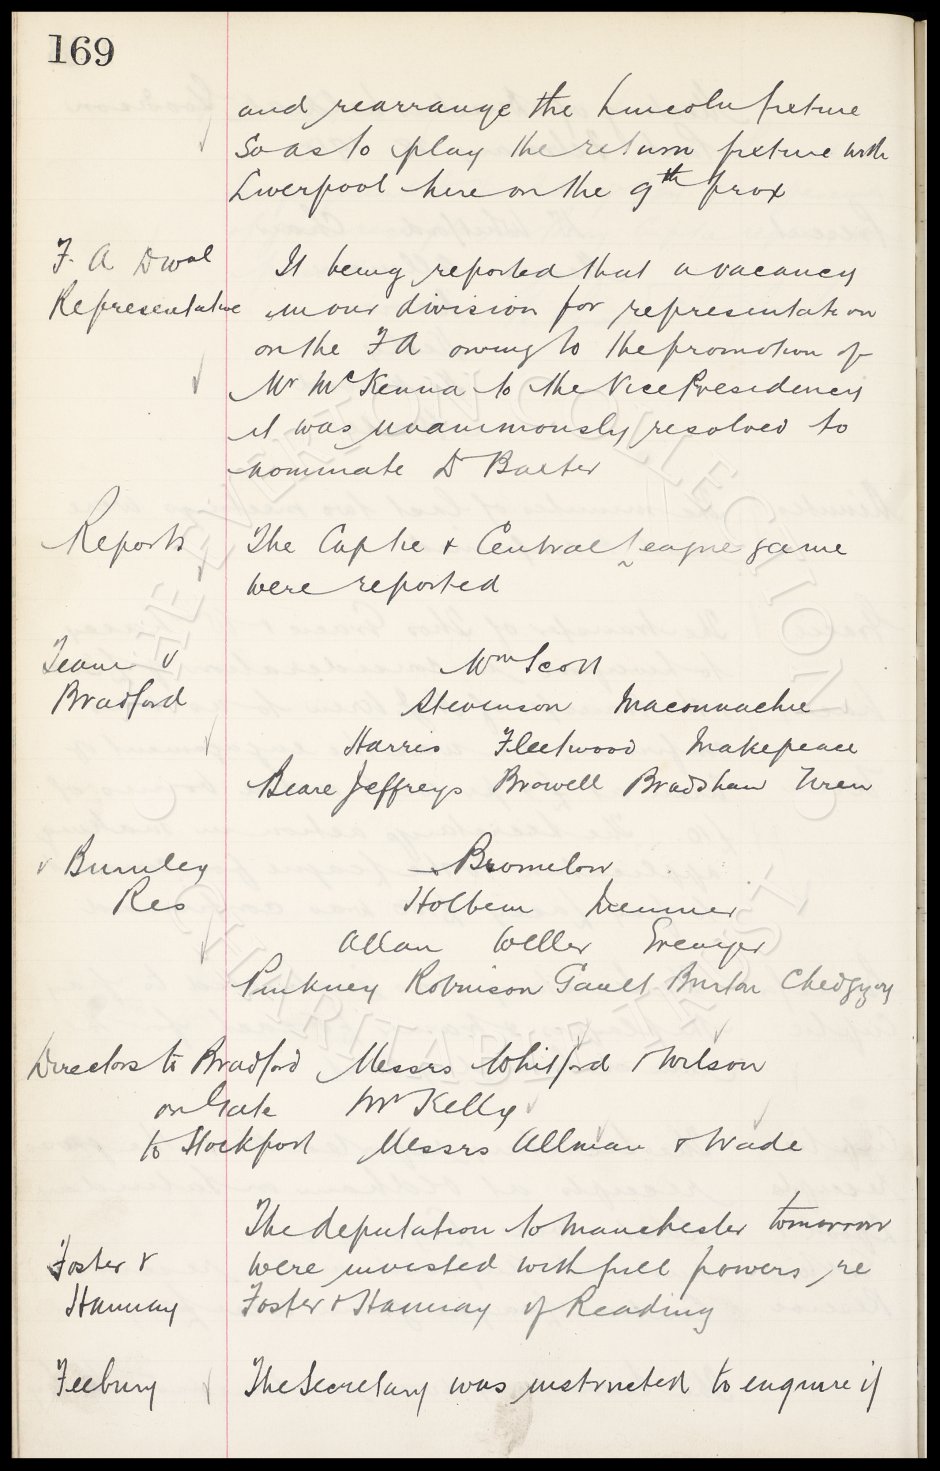 169
and rearrange the Lincoln fixture
So as to play the return fixture with
Liverpool here on the 9th prox
F. A Divnl
Representative
It being reported that a vacancy
in our division for representation
on the FA owing to the promotion of
Mr McKenna to the Vice Presidency
it was unanimously resolved to
nominate Dr Baxter
Reports
The Cuptie & Central League game
were reported
Team v
Bradford
Wm Scott
Stevenson Maconnachie
Harris Fleetwood Makepeace
Beare Jeffreys Browell Bradshaw Uren
v Burnley
Res
Bromelow
Holbem Meunier
Allan Weller Grenyer
Pinkney Robinson Gault Burton Chedgzoy
Directors to Bradford Messrs Whitford & Wilson
on Gate Mr Kelly
to Stockport Messrs Allman & Wade
Foster &
Hannay
The deputation to Manchester tomorrow
were invested with full powers re
Foster & Hannay of Reading
Feebury
The Secretary was instructed to enquire if
THE EVERTON COLLECTION
CHARITABLE TRUST